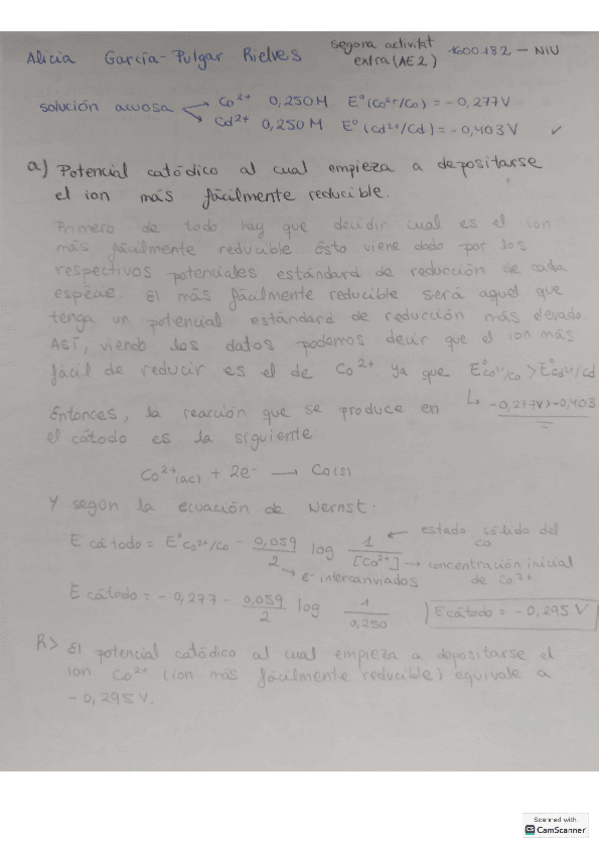 Alicia García-Pulgar Rielves segona activitat extra (AE2) 1600182 - NIU
solución acuosa Co²⁺ 0,250M E° (Co²⁺/Co) = -0,277V
Cd²⁺ 0,250M E° (Cd²⁺/Cd) = -0,403V ✓
a) Potencial catódico al cual empieza a depositarse
el ion más fácilmente reducible.
Primero de todo hay que decidir cual es el ion
más fácilmente reducible. Esto viene dado por los
respectivos potenciales estándard de reducción de cada
especie. El más fácilmente reducible será aquel que
tenga un potencial estándard de reducción más elevado
Así, viendo los datos podemos decir que el ion más
fácil de reducir es el de Co²⁺ ya que E°Co²⁺/Co > E°Cd²⁺/Cd
↳ -0,277V > -0,403
Entonces, la reacción que se produce en
el cátodo es la siguiente:
Co²⁺(ac) + 2e⁻ → Co(s)
Y según la ecuación de Nernst:
E cátodo = E°Co²⁺/Co - 0,059/2 log 1/[Co²⁺] ← estado sólido del Co
→ concentración inicial de Co²⁺
→ e⁻ intercanviados
E cátodo = -0,277 - 0,059/2 log 1/0,250 E cátodo = -0,295 V
R> El potencial catódico al cual empieza a depositarse el
ion Co²⁺ (ion más fácilmente reducible) equivale a
-0,295 V.
Scanned with
CS CamScanner